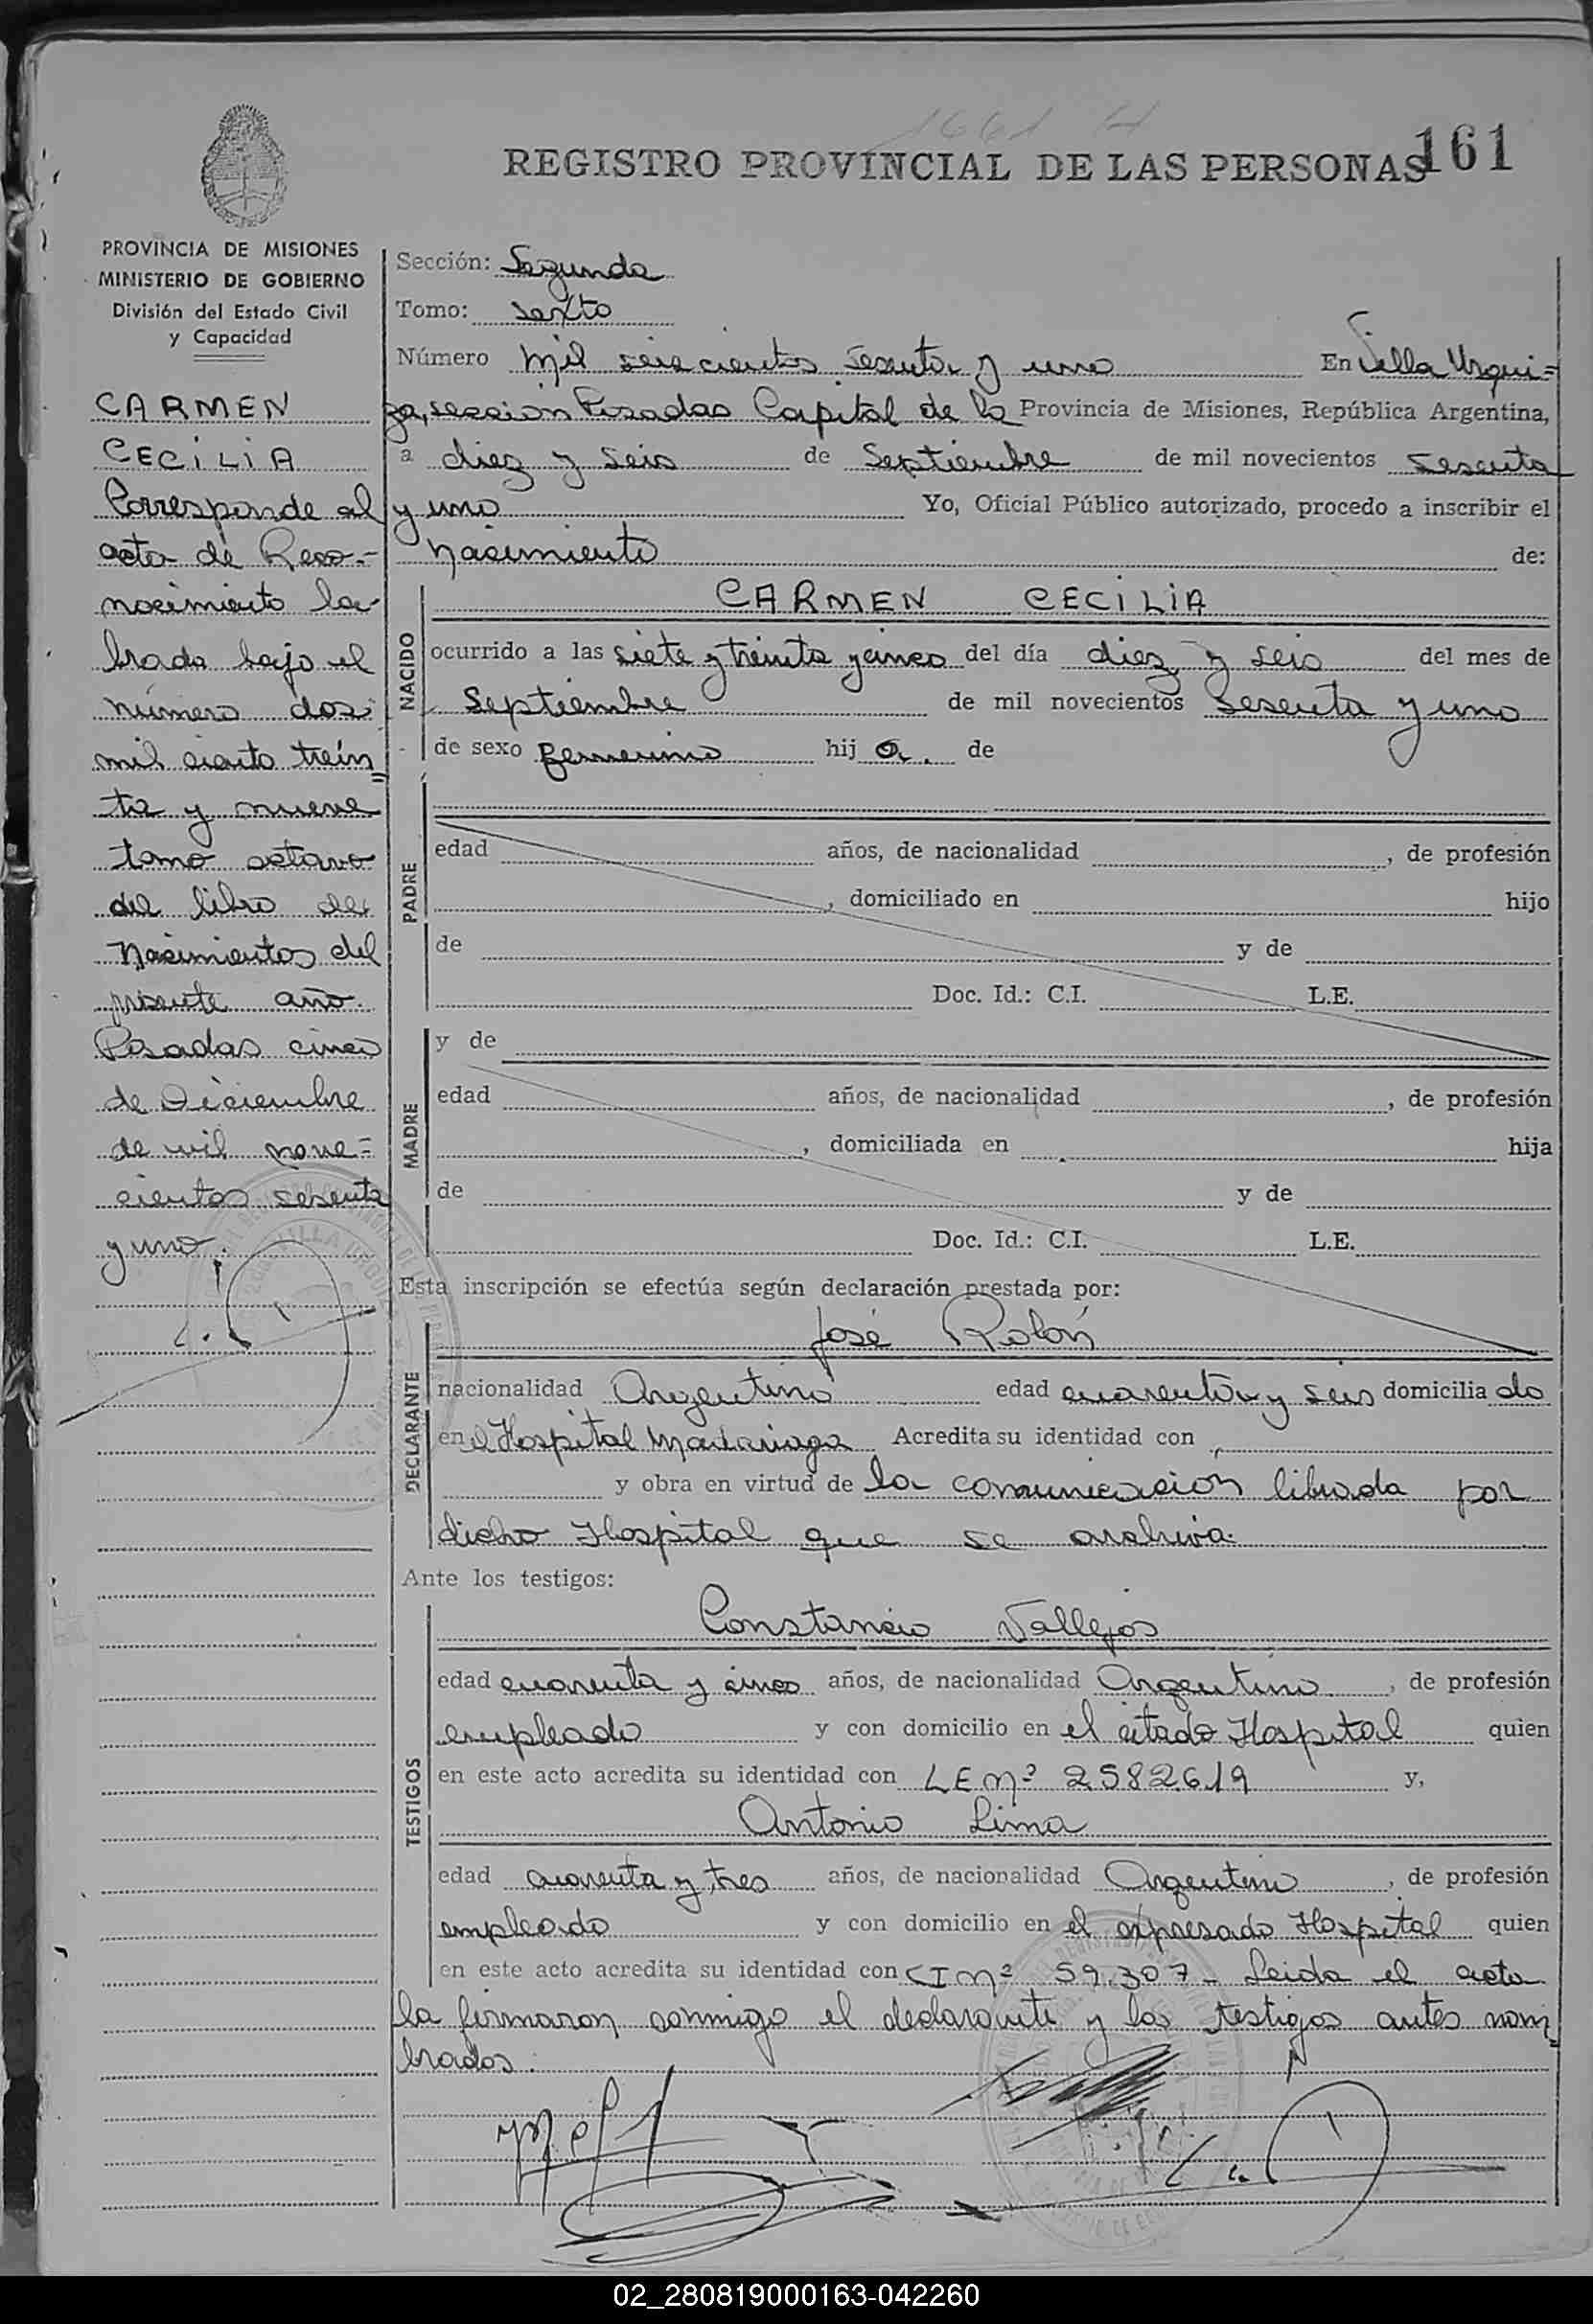 1661 H
REGISTRO PROVINCIAL DE LAS PERSONAS 161
PROVINCIA DE MISIONES
MINISTERIO DE GOBIERNO
División del Estado Civil
y Capacidad
CARMEN
CECILIA
Corresponde al
acta de Reco-
nocimiento la-
brada bajo el
número dos
mil ciento trein=
ta y nueve
tomo octavo
del libro de
Nacimientos del
presente año.
Posadas cinco
de Diciembre
de mil nove=
cientos sesenta
y uno.
Sección: Segunda
Tomo: sexto
Número mil seiscientos sesenta y uno En Villa Urqui=
za, sección Posadas Capital de la Provincia de Misiones, República Argentina,
a diez y seis de Septiembre de mil novecientos sesenta
y uno Yo, Oficial Público autorizado, procedo a inscribir el
nacimiento de:
NACIDO
CARMEN CECILIA
ocurrido a las siete y treinta y cinco del día diez y seis del mes de
Septiembre de mil novecientos sesenta y uno
de sexo femenino hij a. de
PADRE
edad años, de nacionalidad , de profesión
, domiciliado en hijo
de y de
Doc. Id.: C.I. L.E.
MADRE
y de
edad años, de nacionalidad , de profesión
, domiciliada en hija
de y de
Doc. Id.: C.I. L.E.
Esta inscripción se efectúa según declaración prestada por:
DECLARANTE
José Rolón
nacionalidad Argentino edad cuarenta y seis domicilia do
en el Hospital Madariaga Acredita su identidad con
y obra en virtud de la comunicación librada por
dicho Hospital que se archiva.
Ante los testigos:
TESTIGOS
Constancio Vallejos
edad cuarenta y cinco años, de nacionalidad Argentino , de profesión
empleado y con domicilio en el citado Hospital quien
en este acto acredita su identidad con LE nº 2582619 y,
Antonio Lima
edad cuarenta y tres años, de nacionalidad Argentino , de profesión
empleado y con domicilio en el expresado Hospital quien
en este acto acredita su identidad con CI nº 59.307- Leida el acta
la firmaron conmigo el declarante y los testigos antes nom=
brados.
02_280819000163-042260